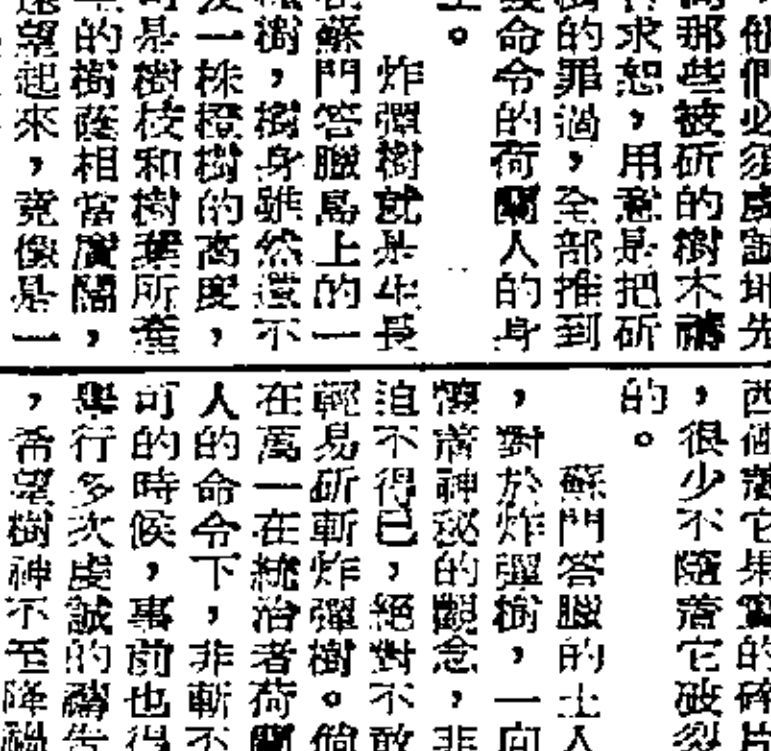 他們必須虔誠地先
那些被斫的樹木禱
求恕,用意是把斫
的罪過,全部推到
命令的荷蘭人的身
上。
炸彈樹就是生長
蘇門答臘島上的一
樹,樹身雖然還不
一株橙樹的高度,
是樹枝和樹葉所產
的樹蔭相當廣闊,
望起來,竟像是一
西碰着它果實的碎片
,很少不隨着它破裂
的。
蘇門答臘的土人
,對於炸彈樹,一向
懷着神秘的觀念,非
迫不得已,絕對不敢
輕易斫斬炸彈樹。倘
在萬一在統治者荷蘭
人的命令下,非斬不
可的時候,事前也得
舉行多次虔誠的禱告
,希望樹神不至降禍